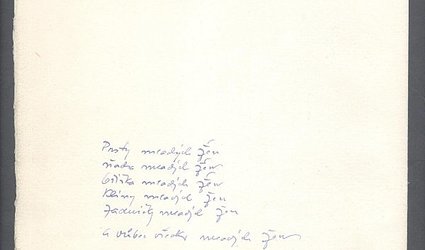 Prsty mladých žen
ňadra mladých žen
bříška mladých žen
klíny mladých žen
zadničky mladých žen
a vůbec všecko mladých žen